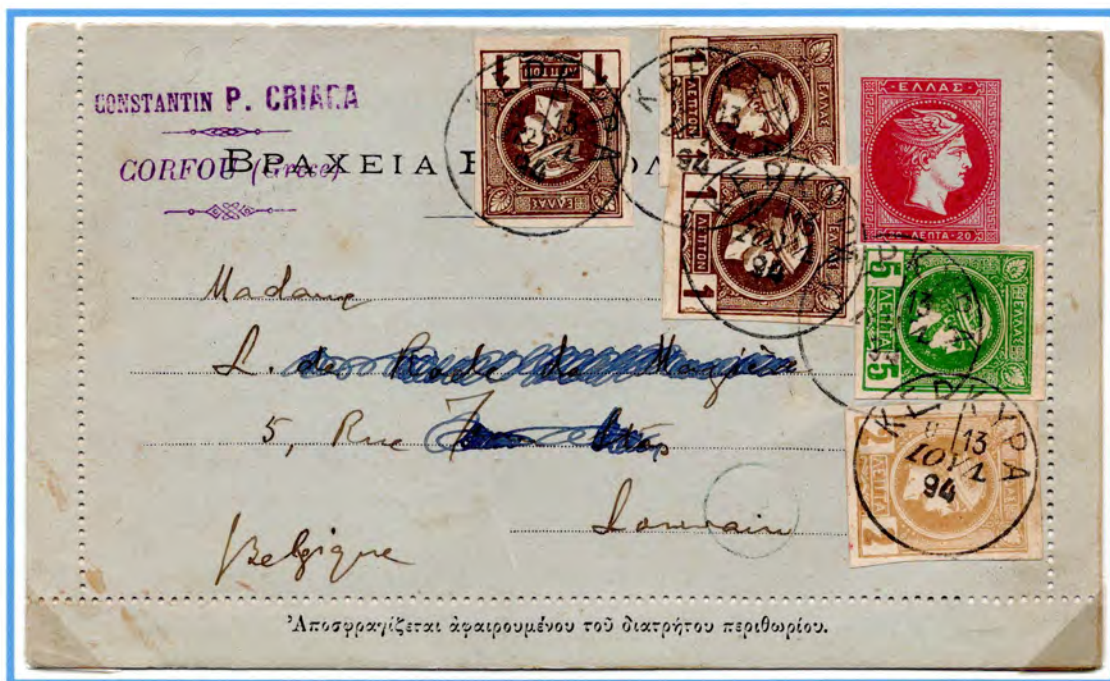 CONSTANTIN P. CRIARA
CORFOU (Grèce)
ΒΡΑΧΕΙΑ
1 ΛΕΠΤΟΝ 1
ΕΛΛΑΣ
1 ΛΕΠΤΟΝ
ΕΛΛΑΣ
1 ΛΕΠΤΟΝ 1
ΕΛΛΑΣ
ΕΛΛΑΣ
20 ΛΕΠΤΑ-20
5 ΛΕΠΤΑ 5
ΕΛΛΑΣ
2 ΛΕΠΤΑ 2
ΚΕΡΚΥΡΑ
13
ΙΟΥΛ
94
Madame
L. de
5, Rue
Louvain
Belgique
Ἀποσφραγίζεται ἀφαιρουμένου τοῦ διατρήτου περιθωρίου.